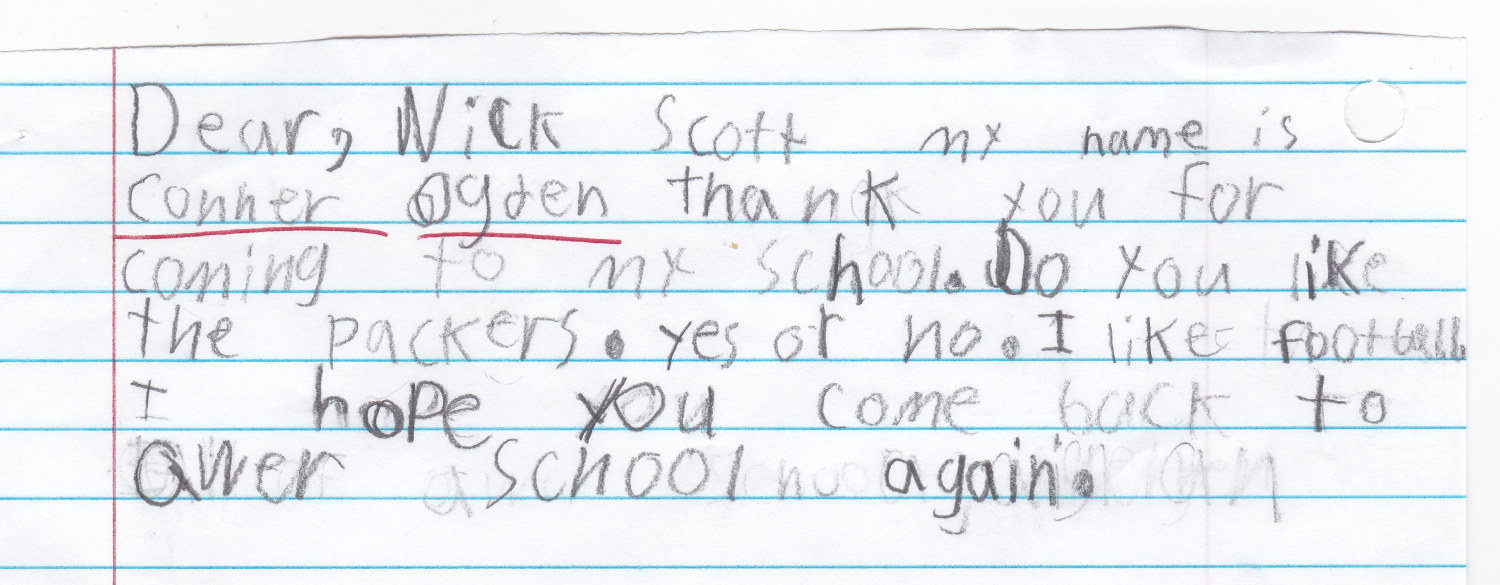 Dear, Nick Scott my name is
Conner Ogden thank you for
coming to my school. Do you like
the packers. yes or no. I like football.
I hope you come back to
awer school again.